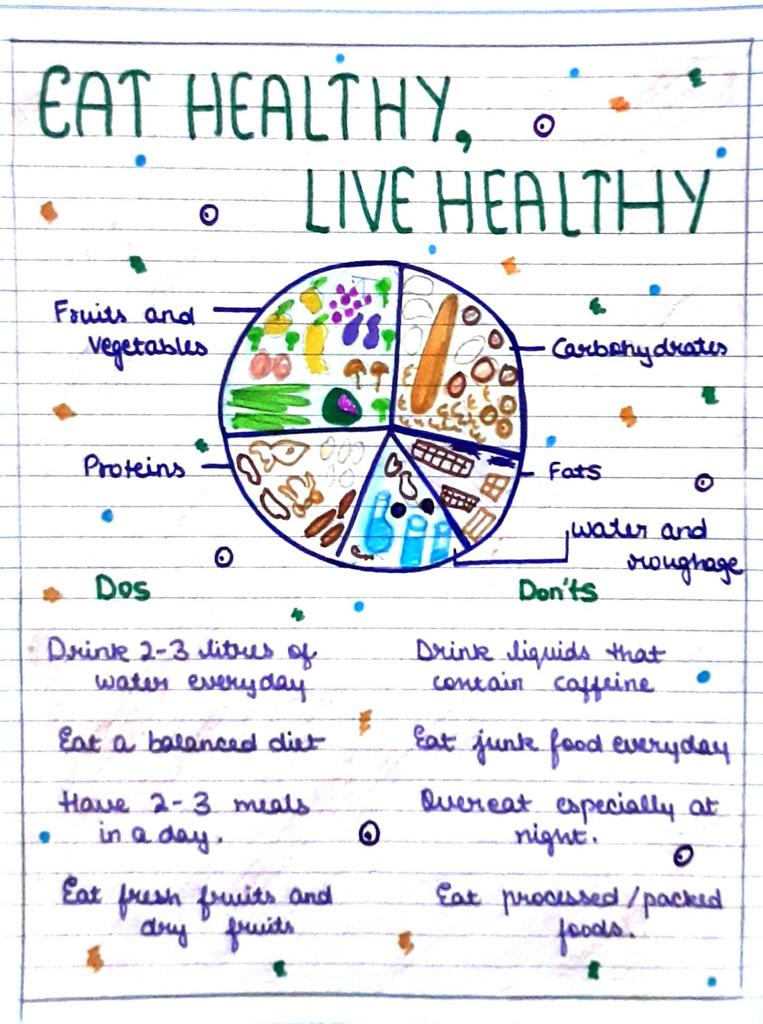 EAT HEALTHY,
LIVE HEALTHY
Fruits and
vegetables
Carbohydrates
Proteins
Fats
water and
roughage
Dos
Drink 2-3 litres of
water everyday
Eat a balanced diet
Have 2-3 meals
in a day.
Eat fresh fruits and
dry fruits
Don'ts
Drink liquids that
contain caffeine
Eat junk food everyday
Overeat especially at
night.
Eat processed/packed
foods.